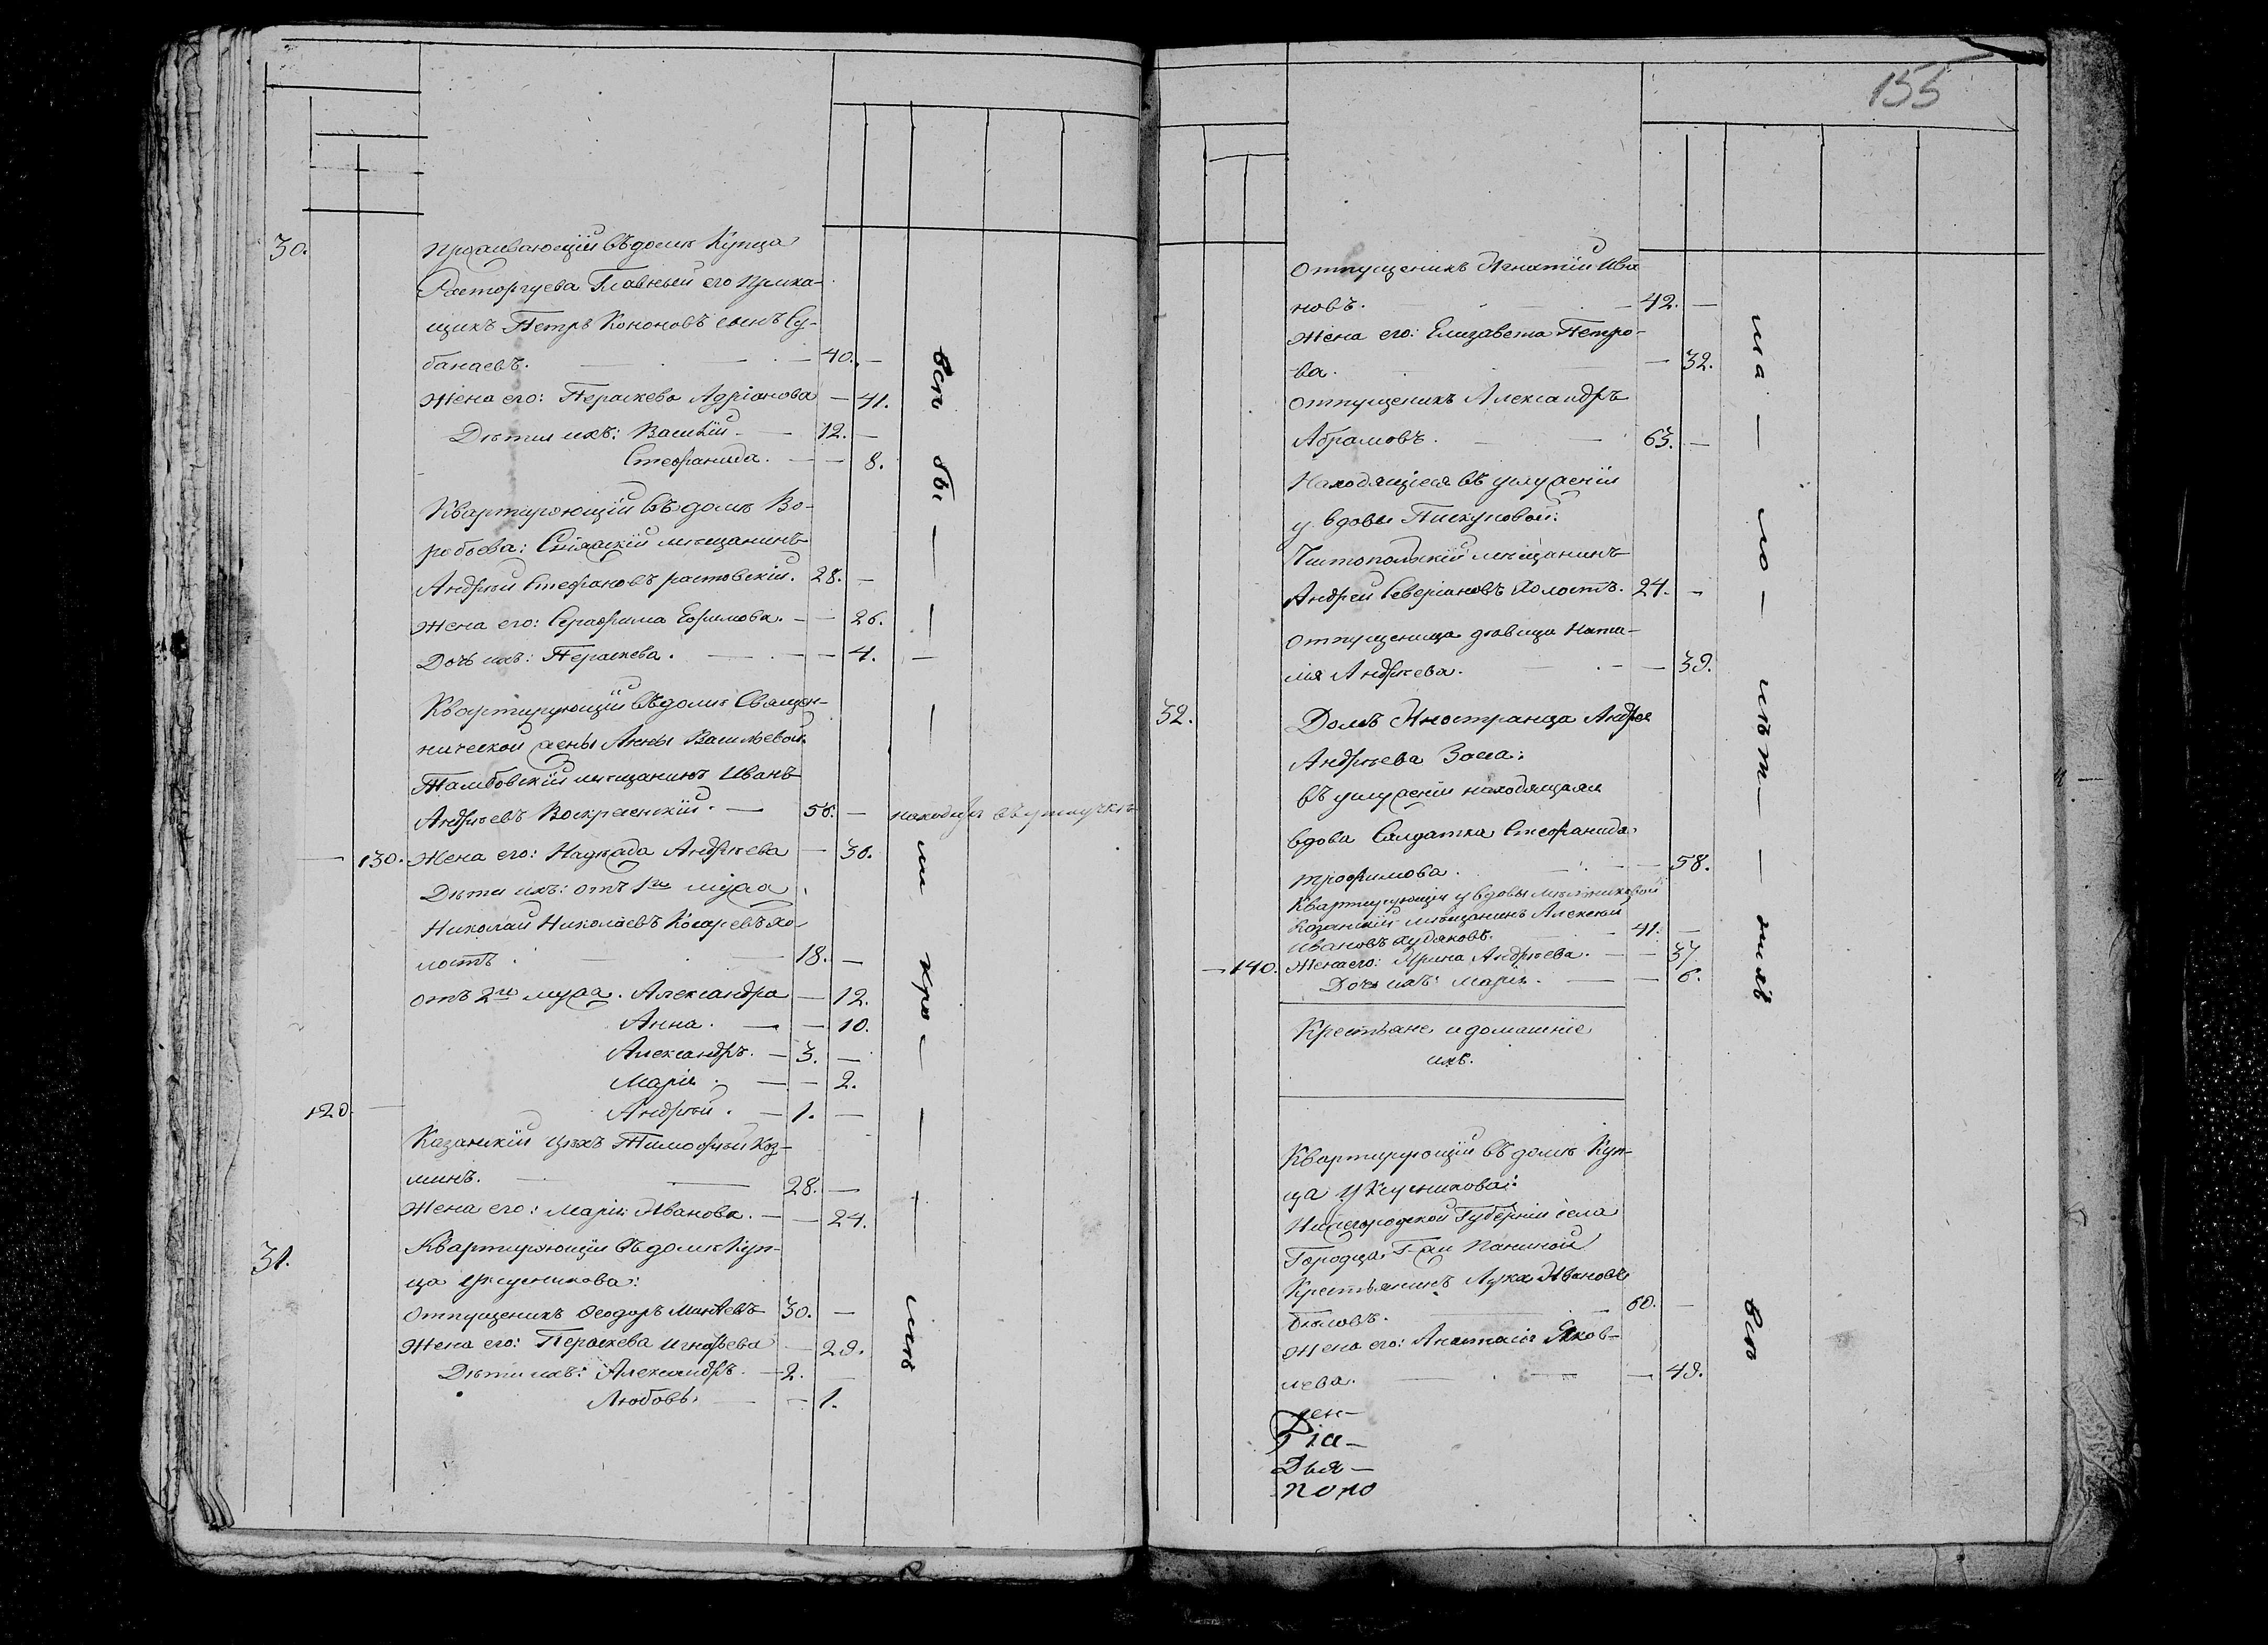 30.
Проживающій въ домѣ Купца
Расторгуева Главный его Прика-
щикъ Петръ Кононовъ сынъ Су-
банаевъ. — 40. —
Жена его: Параскева Адріанова — 41.
Дѣти ихъ: Василій. — 12. —
Стефанида. — — 8.
Квартирующій въ домѣ Во-
робьева: Свіяжскій мѣщанинъ
Андрей Стефановъ растовскій. 28. —
Жена его: Серафима Ефимова. — — 26.
Дочь ихъ: Параскева. — — 4.
Квартирующій въ домѣ Священ-
нической жены Анны Васильевой.
Тамбовскій мѣщанинъ Иванъ
Андреевъ Воскресенскій. — 56. — находится въ отлучкѣ
— 130. Жена его: Надежда Андреева — 30.
Дѣти ихъ: отъ 1го мужа
Николай Николаевъ Косаревъ хо-
лостъ. — 18. —
отъ 2го мужа. Александра — 12.
Анна. — — 10.
Александръ. — 3. —
Марія. — — 2.
120. — Андрей. — 1. —
Казанскій цѣхъ Тимофей Коз-
минъ. — 28. —
Жена его: Марія Иванова. — — 24.
31. Квартирующій въ домѣ Куп-
ца Уксусникова:
Отпущеникъ Феодоръ 30. —
Жена его: Параскева Игнатьева — 29.
Дѣти ихъ: Александръ. — 2. —
Любовь. — — 1.
всѣ бы — — — — — ли кро — — — — мѣ
155
Отпущеникъ Игнатій Ива
новъ. — 42. —
Жена его: Елизавета Петро-
ва. — 32.
Отпущеникъ Александръ
Абрамовъ. — 63. —
Находящіеся въ услуженіи
у вдовы Пискуновой:
Чистопольскій мѣщанинъ
Андрей Северіановъ Холостъ. 24. —
Отпущеница дѣвица Ната-
лія Андреева. — — 39.
32. Домъ Иностранца Андрея
Андреева Заса:
въ услуженіи находящаяся
вдова Салдатка Стефанида
трофимова. — — 58.
Квартирующія у вдовы
Казанскій мѣщанинъ Алексѣй
Ивановъ Худяковъ. — 41. —
— 140. Жена его: Ирина Андреева. — — 37.
Дочь ихъ: Марія. — — 6.
Крестьяне и домашніе
ихъ.
Квартирующій въ домѣ Куп-
ца Уксусникова:
Нижегородской Губерніи села
Городца Г-жи Паниной
Крестьянинъ Лука Ивановъ
Бѣловъ. — 60. —
Жена его: Анастасія Яков-
лева. — — 49.
ма — ло — лѣт — — нихъ
всѣ
Дья —
попо